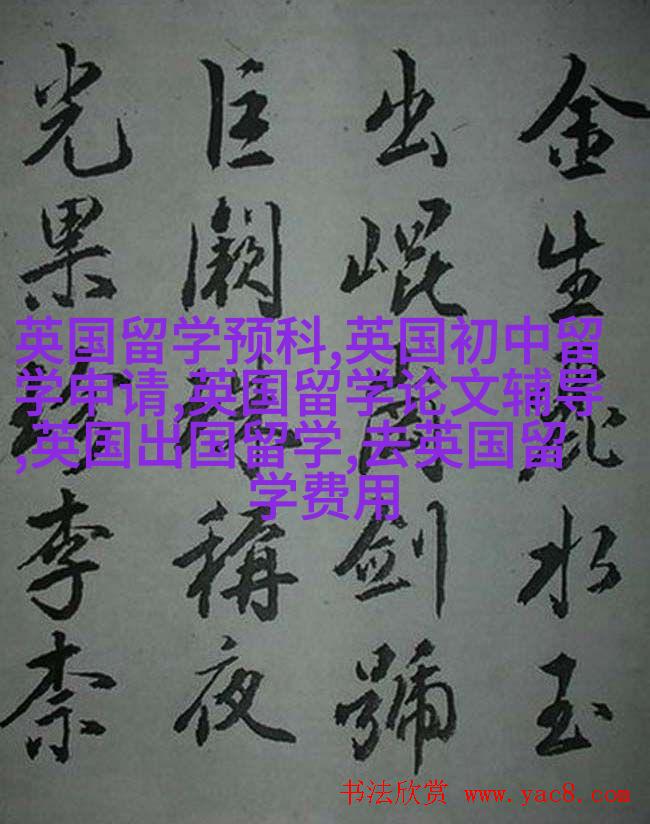 金生麗水玉
出崐岡劍號
巨闕珠稱夜
光果珍李柰
英国留学预科,英国初中留
学申请,英国留学论文辅导
,英国出国留学,去英国留
学费用
书法欣赏 www.yac8.com